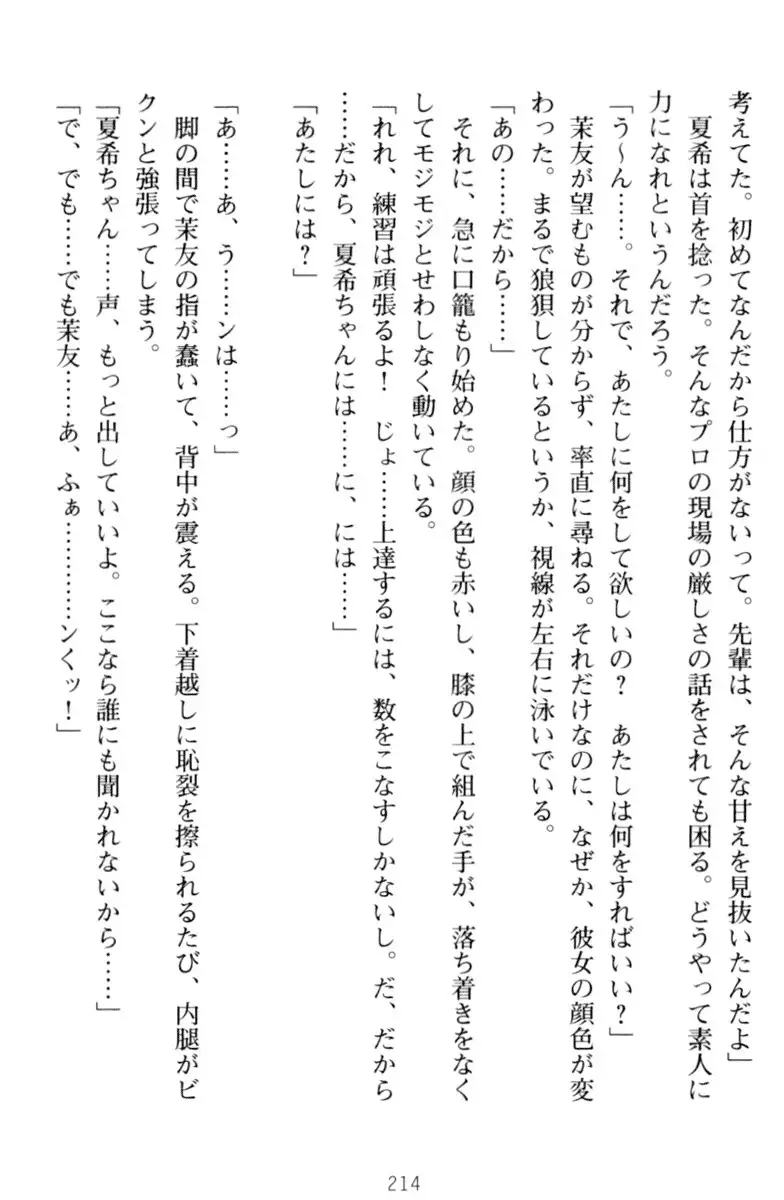 考えてた。初めてなんだから仕方がないって。先輩は、そんな甘えを見抜いたんだよ」
夏希は首を捻った。そんなプロの現場の厳しさの話をされても困る。どうやって素人に
力になれというんだろう。
「う〜ん……。それで、あたしに何をして欲しいの？　あたしは何をすればいい？」
茉友が望むものが分からず、率直に尋ねる。それだけなのに、なぜか、彼女の顔色が変
わった。まるで狼狽しているというか、視線が左右に泳いでいる。
「あの……だから……」
それに、急に口籠もり始めた。顔の色も赤いし、膝の上で組んだ手が、落ち着きをなく
してモジモジとせわしなく動いている。
「れれ、練習は頑張るよ！　じょ……上達するには、数をこなすしかないし。だ、だから
……だから、夏希ちゃんには……に、には……」
「あたしには？」
「あ……あ、う……ンは……っ」
脚の間で茉友の指が蠢いて、背中が震える。下着越しに恥裂を擦られるたび、内腿がビ
クンと強張ってしまう。
「夏希ちゃん……声、もっと出していいよ。ここなら誰にも聞かれないから……」
「で、でも……でも茉友……あ、ふぁ…………ンくッ！」
214